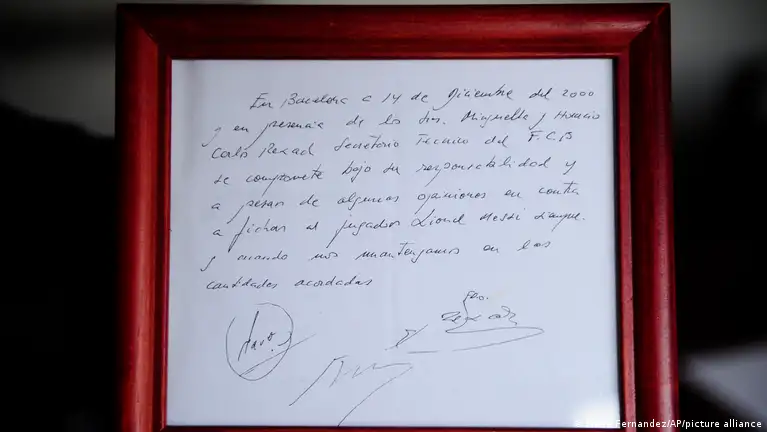 En Barcelona a 14 de Diciembre del 2000
y en presencia de los Srs. Minguella y Horacio
Carlos Rexach Secretario Tecnico del F.C.B
se compromete bajo su responsabilidad y
a pesar de algunas opiniones en contra
a fichar al jugador Lionel Messi siempre
y cuando nos mantengamos en las
cantidades acordadas
Fernandez/AP/picture alliance